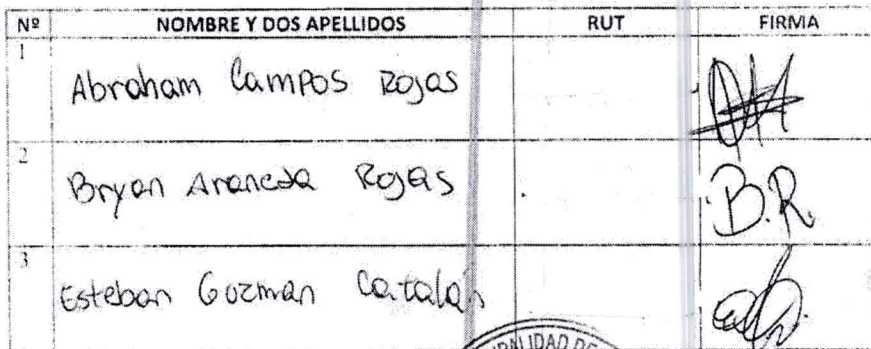 Nº NOMBRE Y DOS APELLIDOS RUT FIRMA
1 Abraham Campos Rojas
2 Bryan Araneda Rojas B.R.
3 Esteban Guzman Catalán
PALIDAD DE